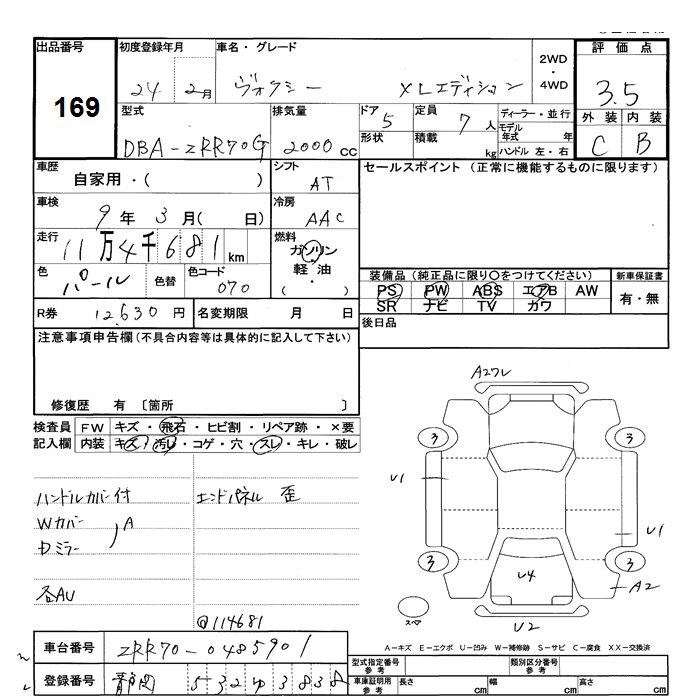 出品番号 初度登録年月 車名・グレード 2WD・4WD 評価点
169 24年 2月 ヴォクシー XLエディション 3.5
型式 排気量 ドア 5 定員 7人 ディーラー・並行 外装 内装
DBA-ZRR70G 2000cc 形状 積載 kg モデル年式 年 ハンドル 左・右 C B
車歴 自家用・( ) シフト AT セールスポイント (正常に機能するものに限ります)
車検 9年 3月( 日) 冷房 AAC
走行 11万4千681km 燃料 ガソリン 軽油 ( ・ )
色 パール 色替 色コード 070 装備品 (純正品に限り〇をつけてください) 新車保証書
PS PW ABS エアB AW 有・無
SR ナビ TV カワ
R券 12,630円 名変期限 月 日 後日品
注意事項申告欄(不具合内容等は具体的に記入して下さい)
修復歴 有 〔箇所 〕
検査員 FW キズ・飛石・ヒビ割・リペア跡・×要
記入欄 内装 キズ・汚レ・コゲ・穴・スレ・キレ・破レ
A27レ
3 3
U1 U1
3 3
U4 A2
スペア U2
ハンドルカバー付 エンドパネル 歪
Wカバー A
Dミラー
各AU
@114681
A-キズ E-エクボ U-凹み W-補修跡 S-サビ C-腐食 XX-交換済
車台番号 ZRR70-0485901 型式指定番号 参考 類別区分番号 参考
登録番号 静岡 532 ゆ 3838 車庫証明用 参考 長さ cm 幅 cm 高さ cm